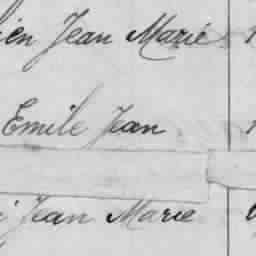 Jean Marie
Emile Jean
Jean Marie